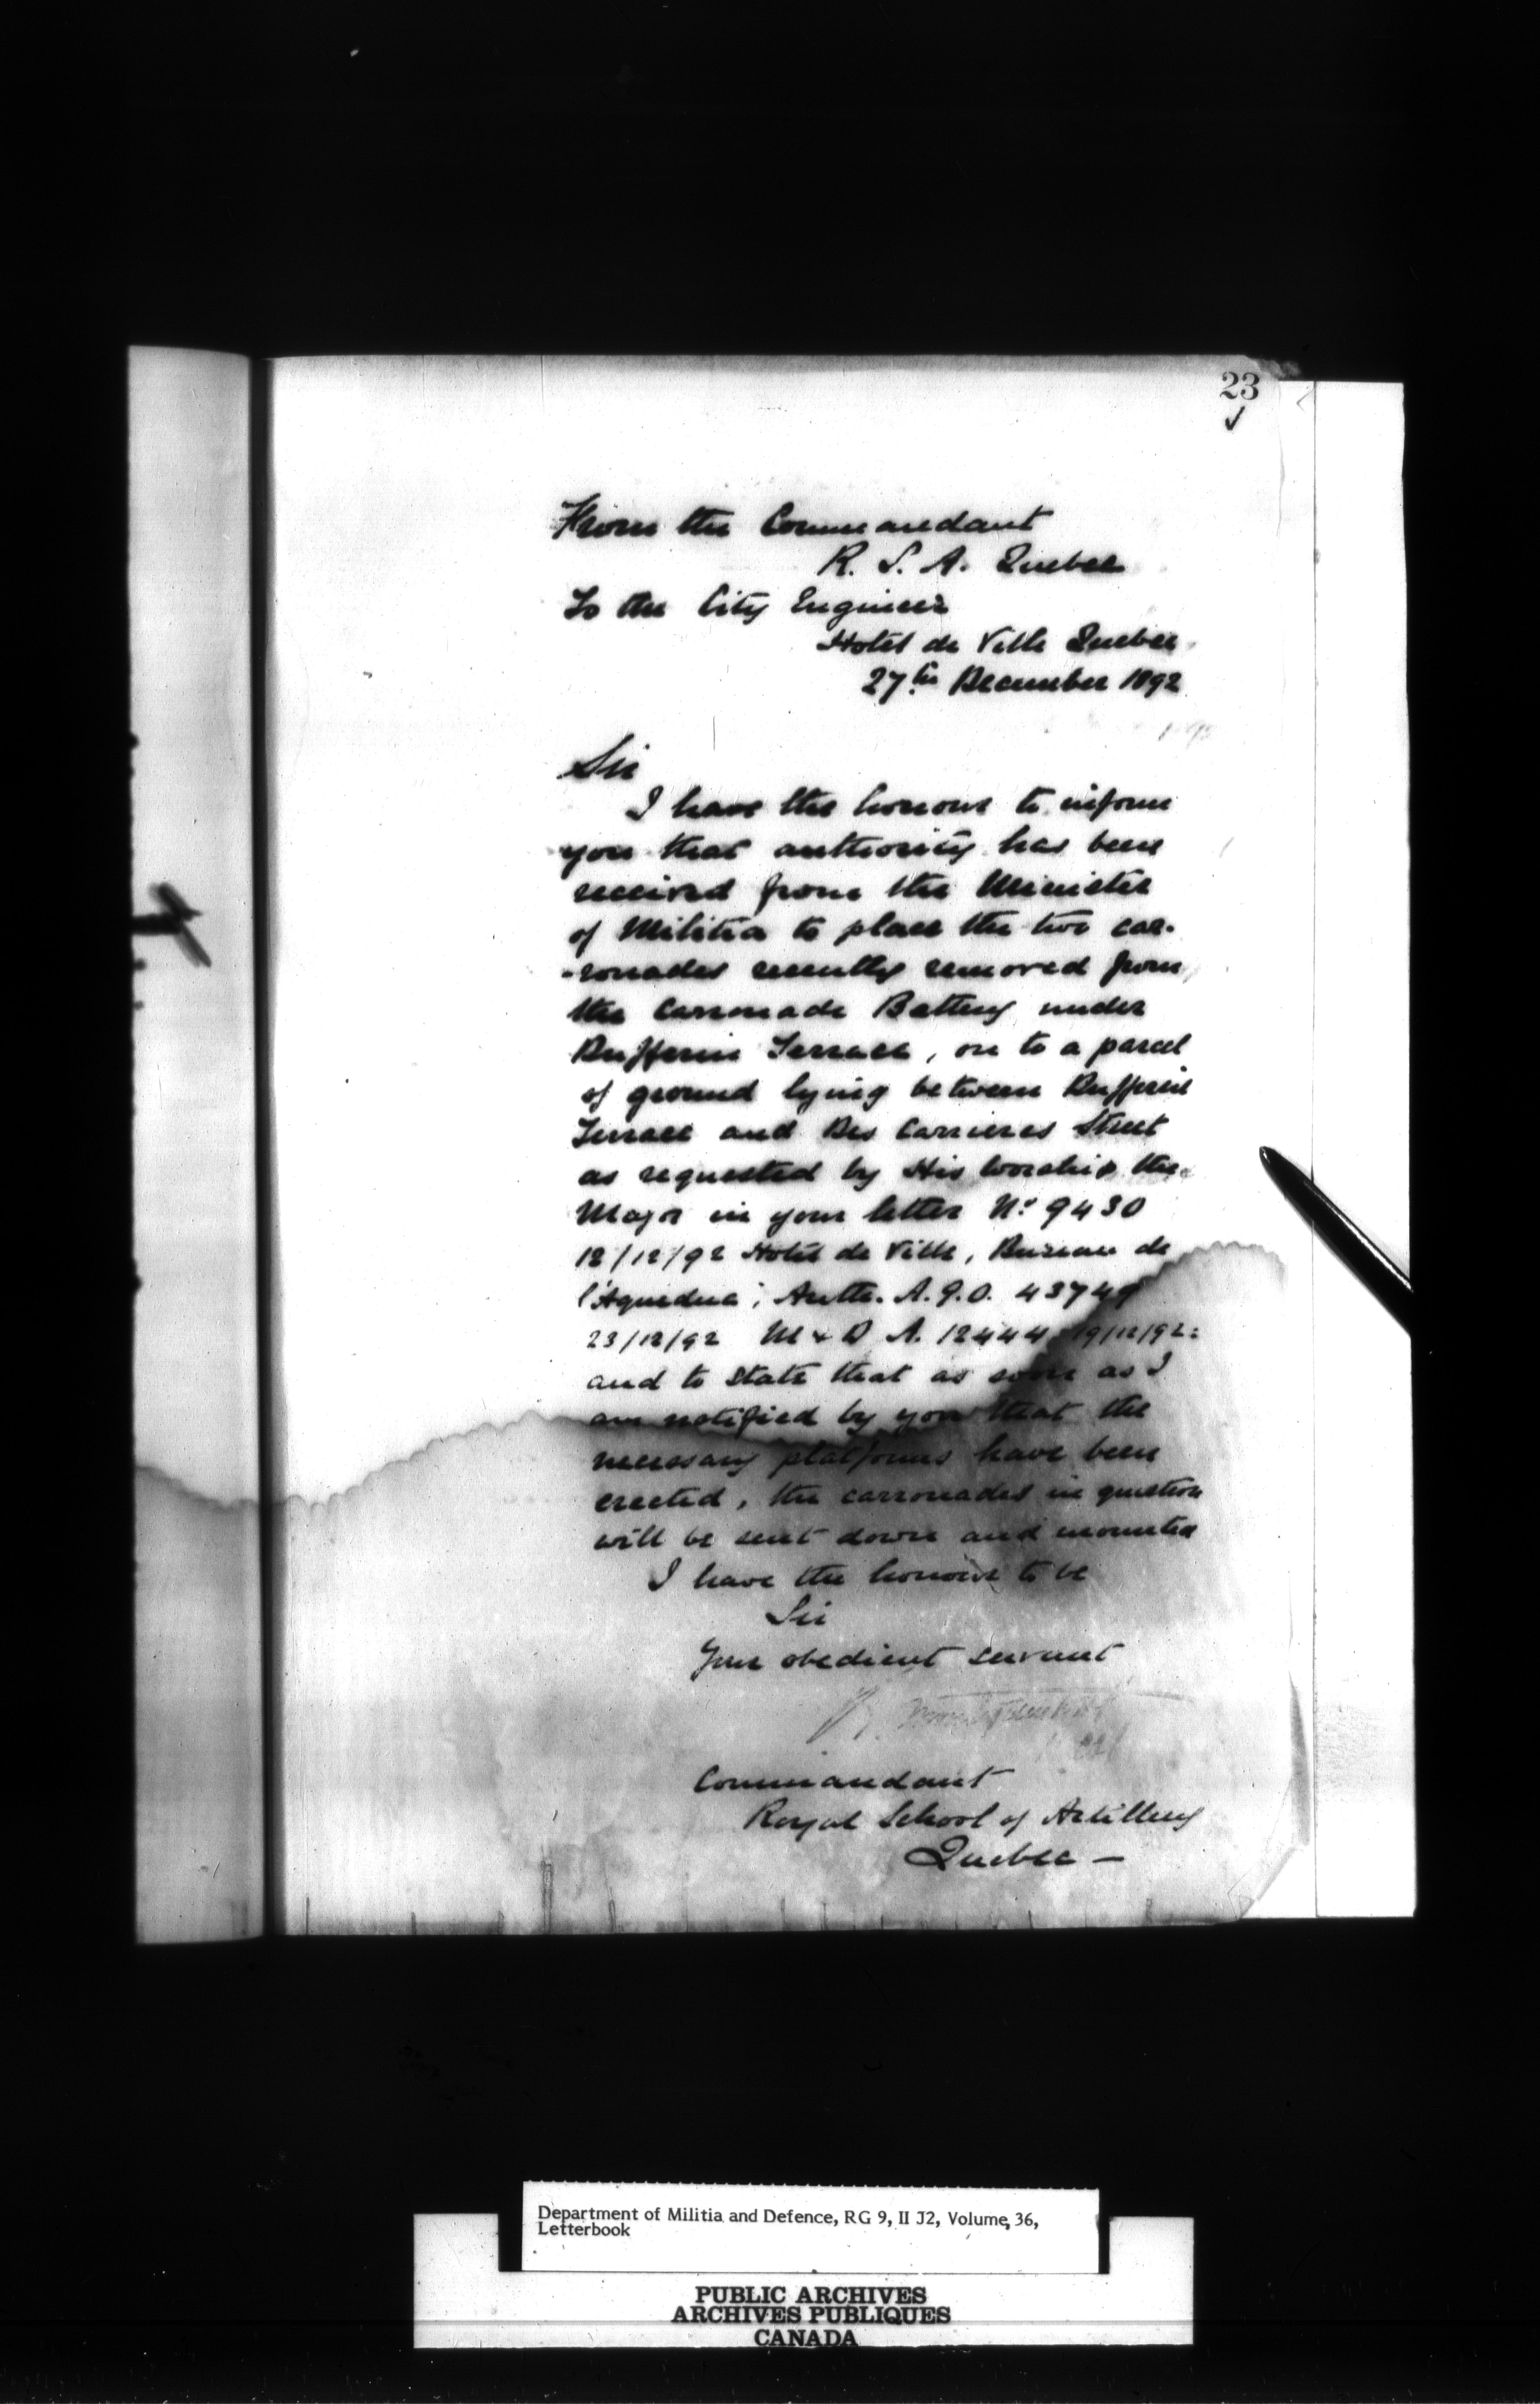 23
From the Commandant
R. S. A. Quebec
To the City Engineer
Hotel de Ville Quebec
27th December 1892
Sir
I have the honour to inform
you that authority has been
received from the Minister
of Militia to place the two car-
-ronades recently removed from
the Carronade Battery under
Dufferin Terrace, on to a parcel
of ground lying between Dufferin
Terrace and Des Carrieres Street
as requested by His Worship the
Mayor in your letter No 9430
12/12/92 Hotel de Ville, Bureau de
l'Aqueduc; Auth. A.G.O. 43749
23/12/92 M & D A. 12444 19/12/92:
and to state that as soon as I
am notified by you that the
necessary platforms have been
erected, the carronades in question
will be sent down and mounted
I have the honour to be
Sir
Your obedient servant
Commandant
Royal School of Artillery
Quebec —
Department of Militia and Defence, RG 9, II J2, Volume 36,
Letterbook
PUBLIC ARCHIVES
ARCHIVES PUBLIQUES
CANADA